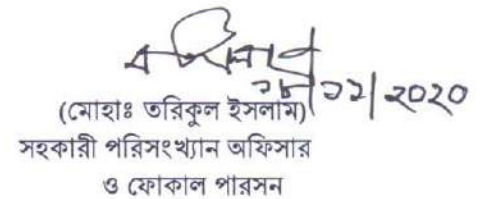 ২৮/১২/২০২০
(মোহাঃ তরিকুল ইসলাম)
সহকারী পরিসংখ্যান অফিসার
ও ফোকাল পারসন